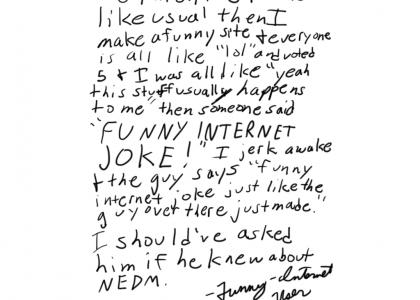 like usual then I
make a funny site & everyone
is all like "lol" and voted
5 & I was all like "yeah
this stuff usually happens
to me" then someone said
"FUNNY INTERNET
JOKE!" I jerk awake
& the guy says "funny
internet joke just like the
guy over there just made."
I should've asked
him if he knew about
NEDM.
-Funny-Internet
User